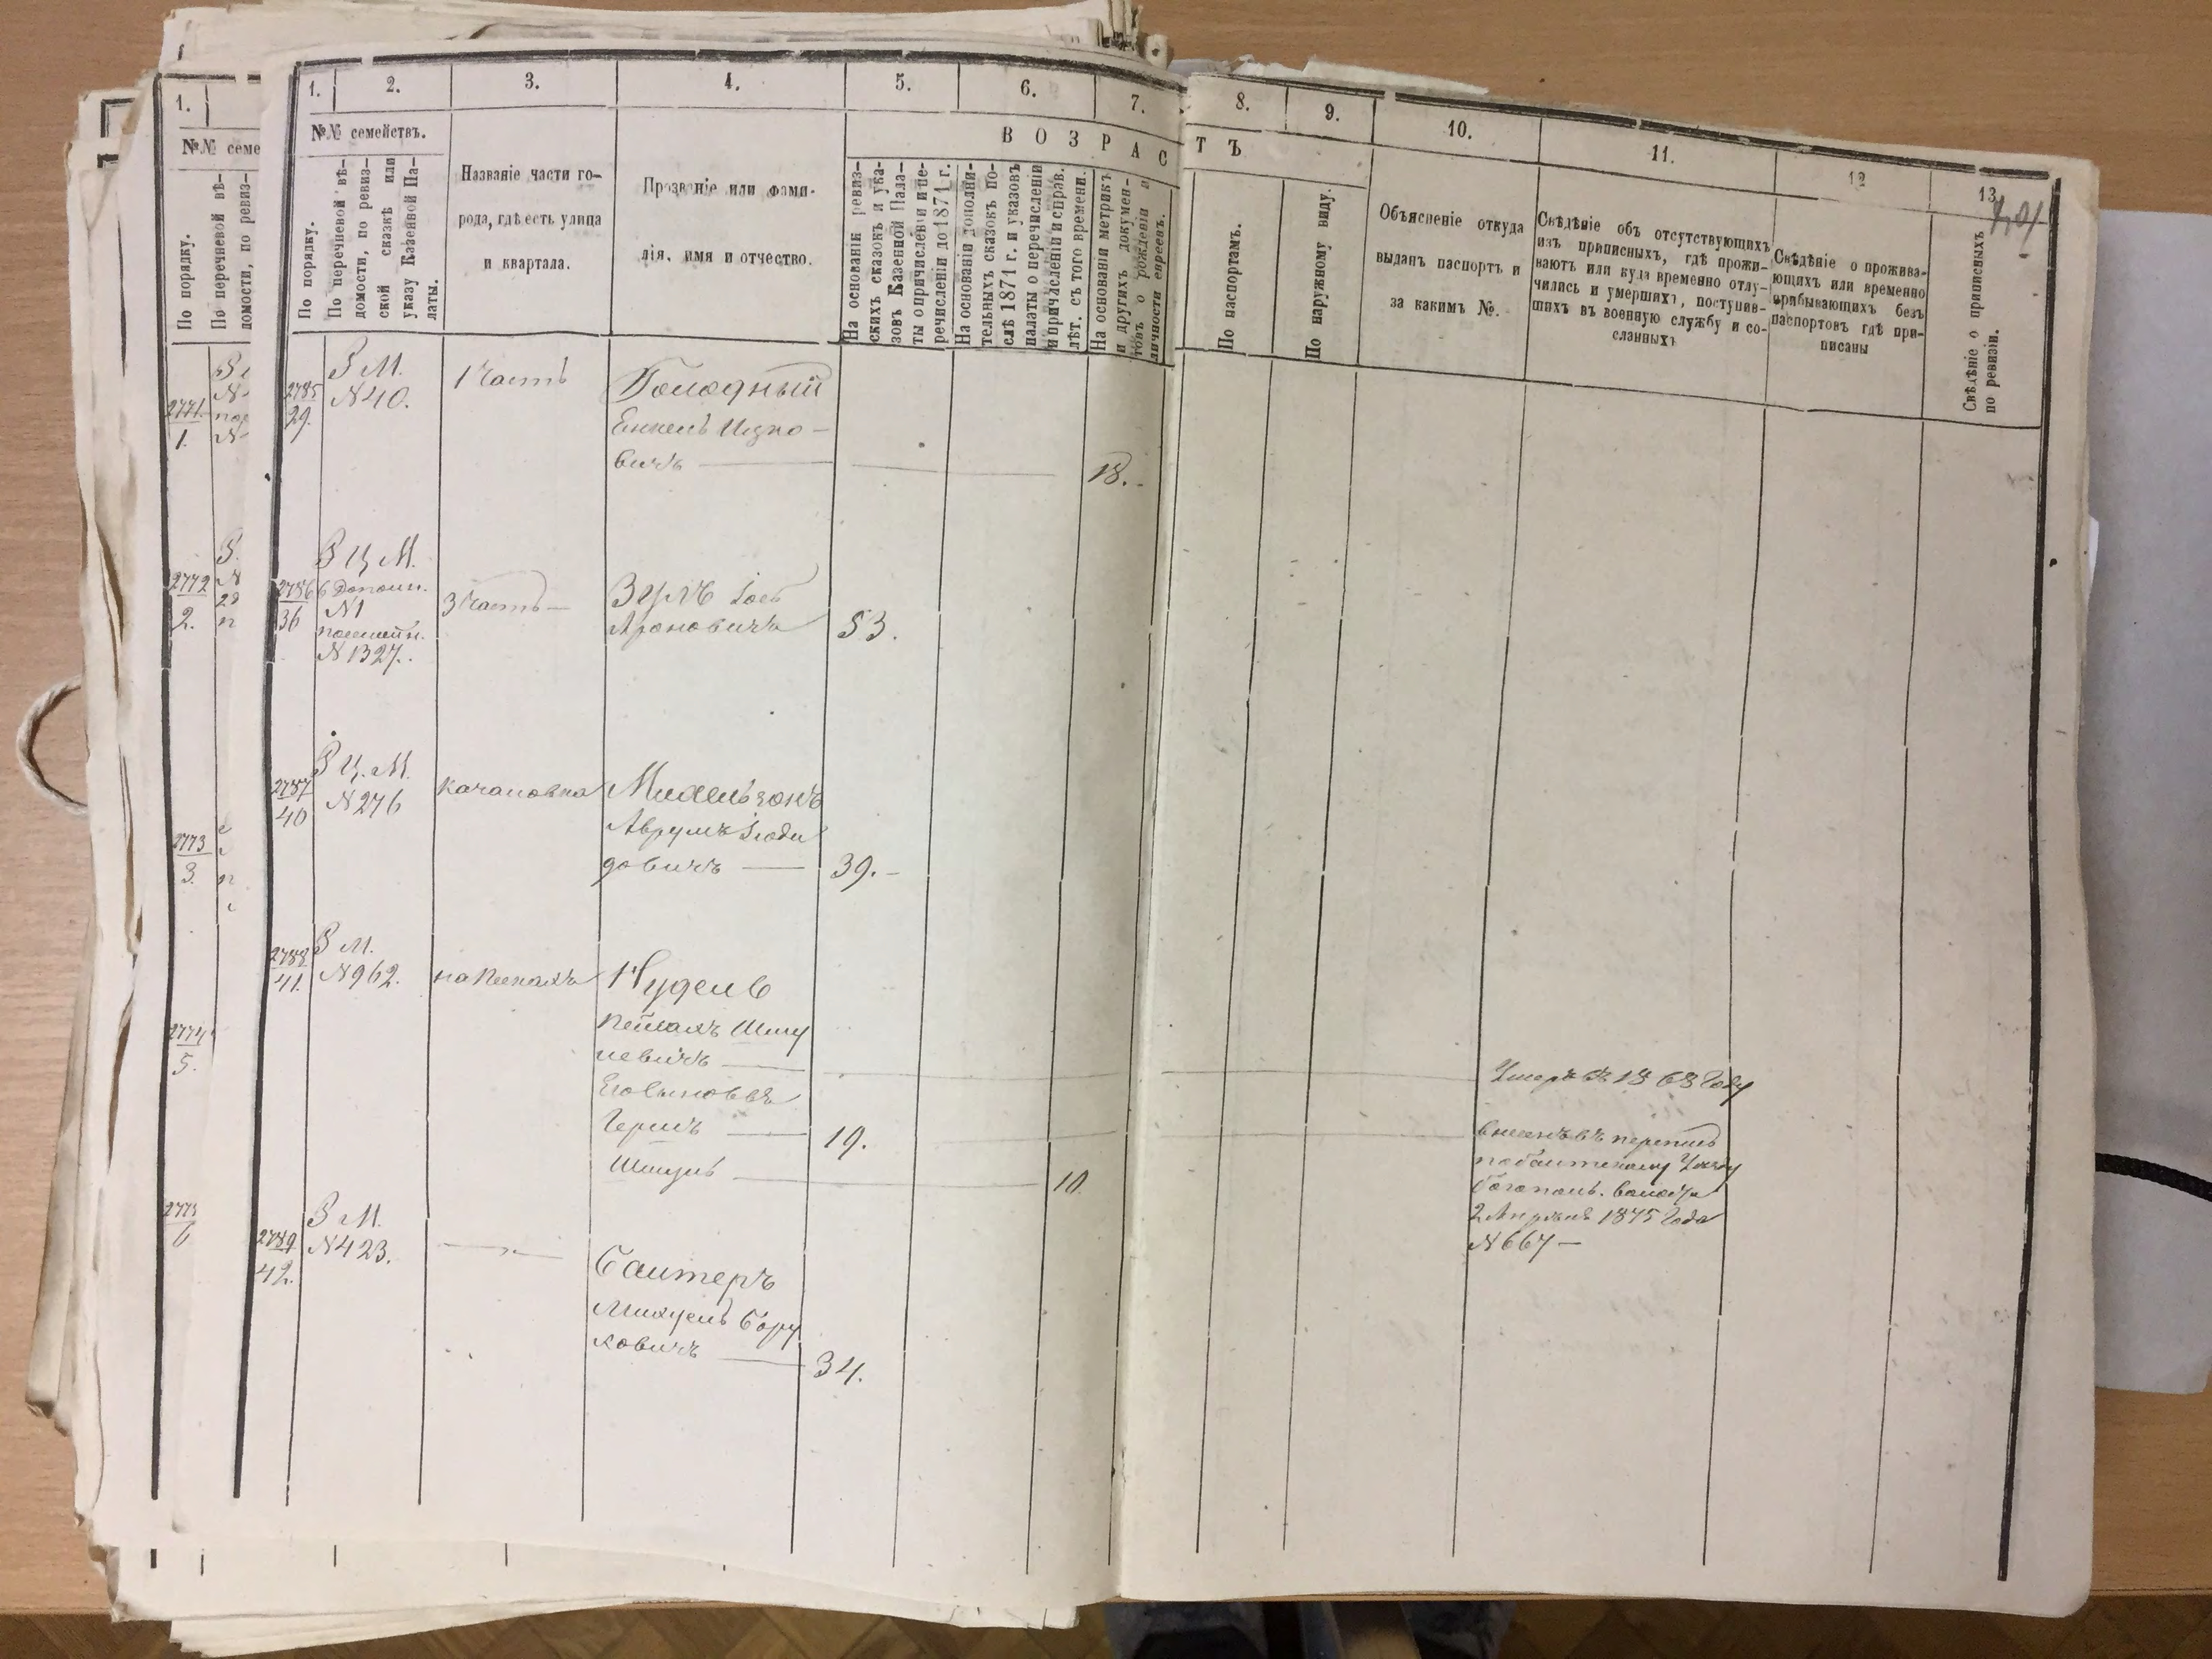 1.
№№ семе
По порядку.
По перечневой вѣ-
домости, по ревиз-
2771
1.
2772
2.
2773
3.
2774
5.
2775
6
1.
2.
3.
4.
5.
6.
7.
8.
9.
10.
11.
12
13.
401
№№ семействъ.
По порядку.
По перечневой вѣ-
домости, по ревиз-
ской сказкѣ или
указу Казенной Па-
латы.
Названіе части го-
рода, гдѣ есть улица
и квартала.
Прозваніе или фами-
лія, имя и отчество.
ВОЗРАСТЪ
На основаніи ревиз-
скихъ сказокъ и ука-
зовъ Казенной Пала-
ты о причисленіи и пе-
речисленіи до 1871 г.
На основаніи дополни-
тельныхъ сказокъ по-
слѣ 1871 г. и указовъ
палаты о перечисленіи
и причисленіи и справ.
лѣт. съ того времени.
На основаніи метрикъ
и другихъ докумен-
товъ о рожденіи и
личности евреевъ.
По паспортамъ.
По наружному виду.
Объясненіе откуда
выданъ паспортъ и
за какимъ №.
Свѣдѣніе объ отсутствующихъ
изъ приписныхъ, гдѣ прожи-
ваютъ или куда временно отлу-
чились и умершихъ, поступив-
шихъ въ военную службу и со-
сланныхъ
Свѣдѣніе о прожива-
ющихъ или временно
прибывающихъ безъ
паспортовъ гдѣ при-
писаны
Свѣдѣніе о приписныхъ
по ревизіи.
2785
29.
З М.
N 40.
1 Часть
Голодный
Енкель Ицко-
вичъ
18.
2786
36
З Ц М.
6 Дополн.
N 1
посемейн.
N 1327.
3 Часть
Зуль Іось
Ароновичъ
53.
2787
40
З Ц. М.
N 276
Качановка
Михельзонъ
Аврумъ Іюди
довичъ
39.
2788
41.
З М.
N 962.
на Пескахъ
Нудель
Пейсахъ Шму
левичъ
Умеръ въ 1868 Году
Его сыновья
Гершъ
19.
Внесенъ въ перепись
по Балтскому Уезду
Богопол. Волости
2 Апреля 1875 Года
N 667
Шмуль
10
2789
42.
З М.
N 423.
Балтеръ
Михуель Бору
ховичъ
34.